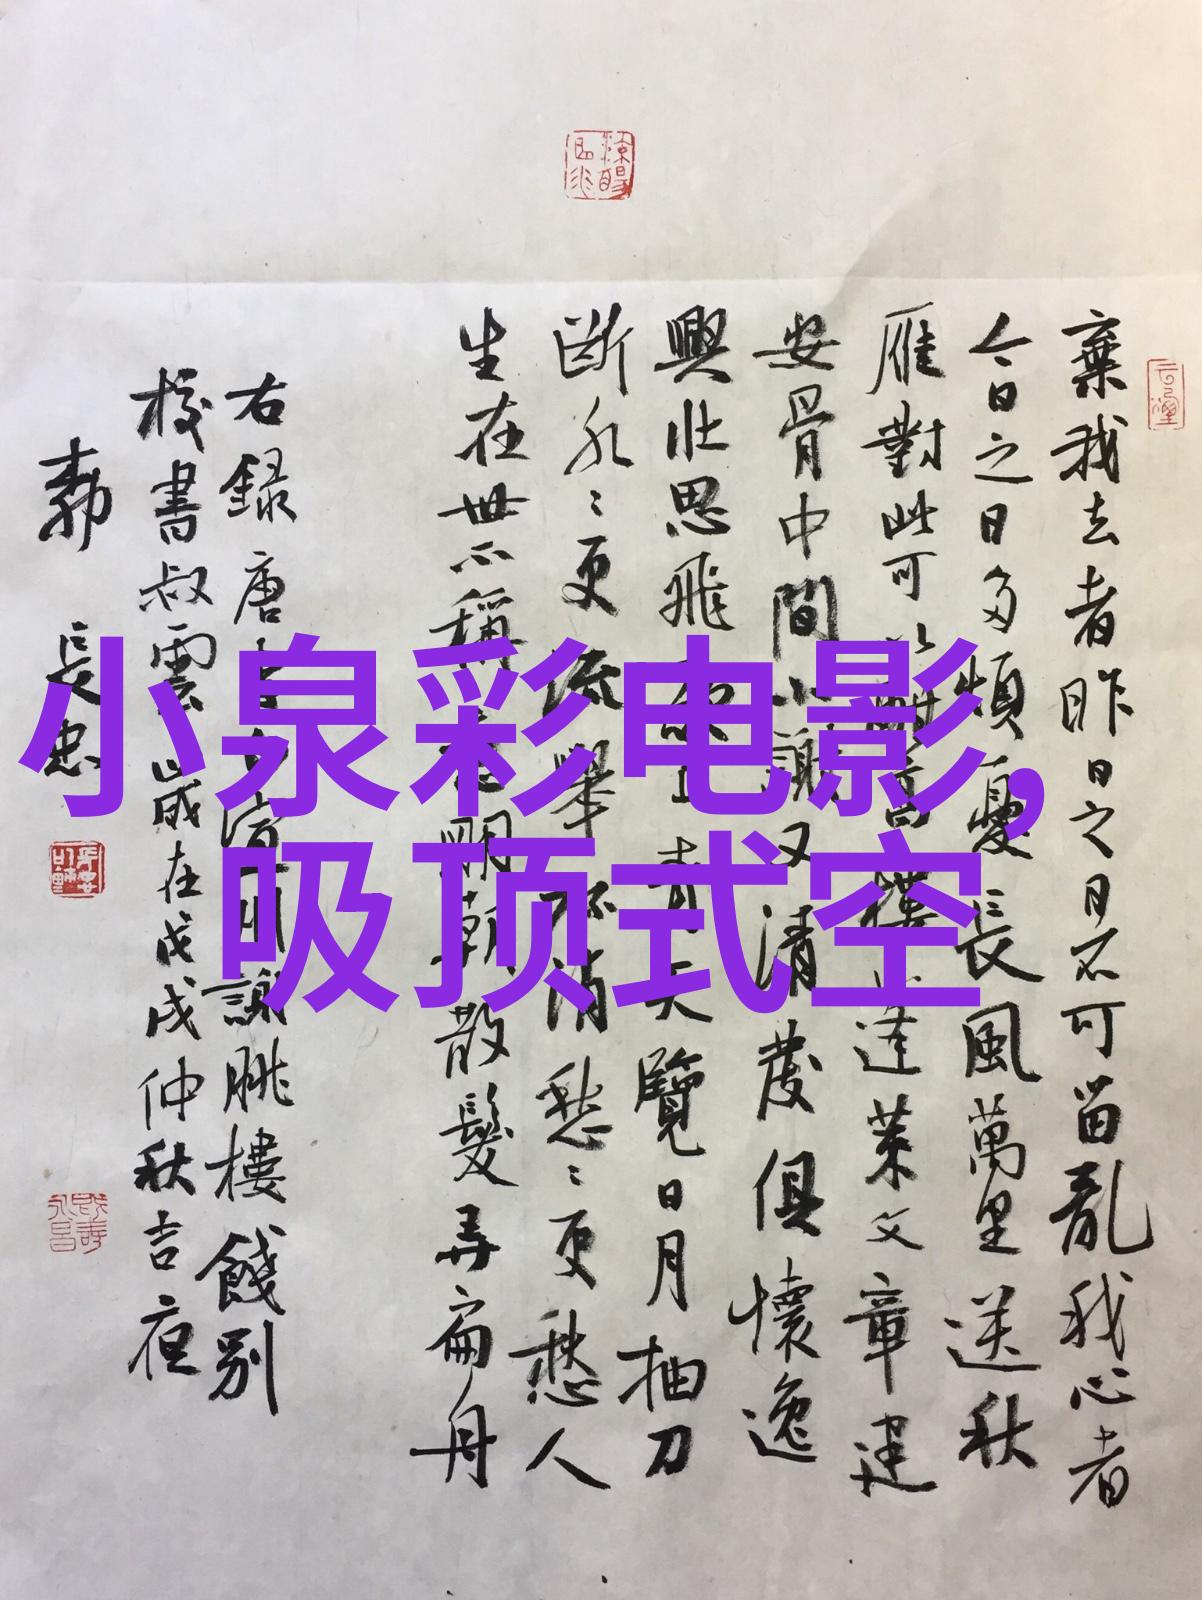 小泉彩电影,
吸顶式空
棄我去者昨日之日不可留亂我心者
今日之日多煩憂長風萬里送秋
雁對此可以酣高樓蓬萊文章建
安骨中間小謝又清發俱懷逸
興壯思飛欲上青天覽日月抽刀
斷水〻更流舉杯消愁〻更愁人
生在世不稱意明朝散髮弄扁舟
右録唐李白宣州謝朓樓餞別
校書叔雲歲在戊戌仲秋吉夜
長忠